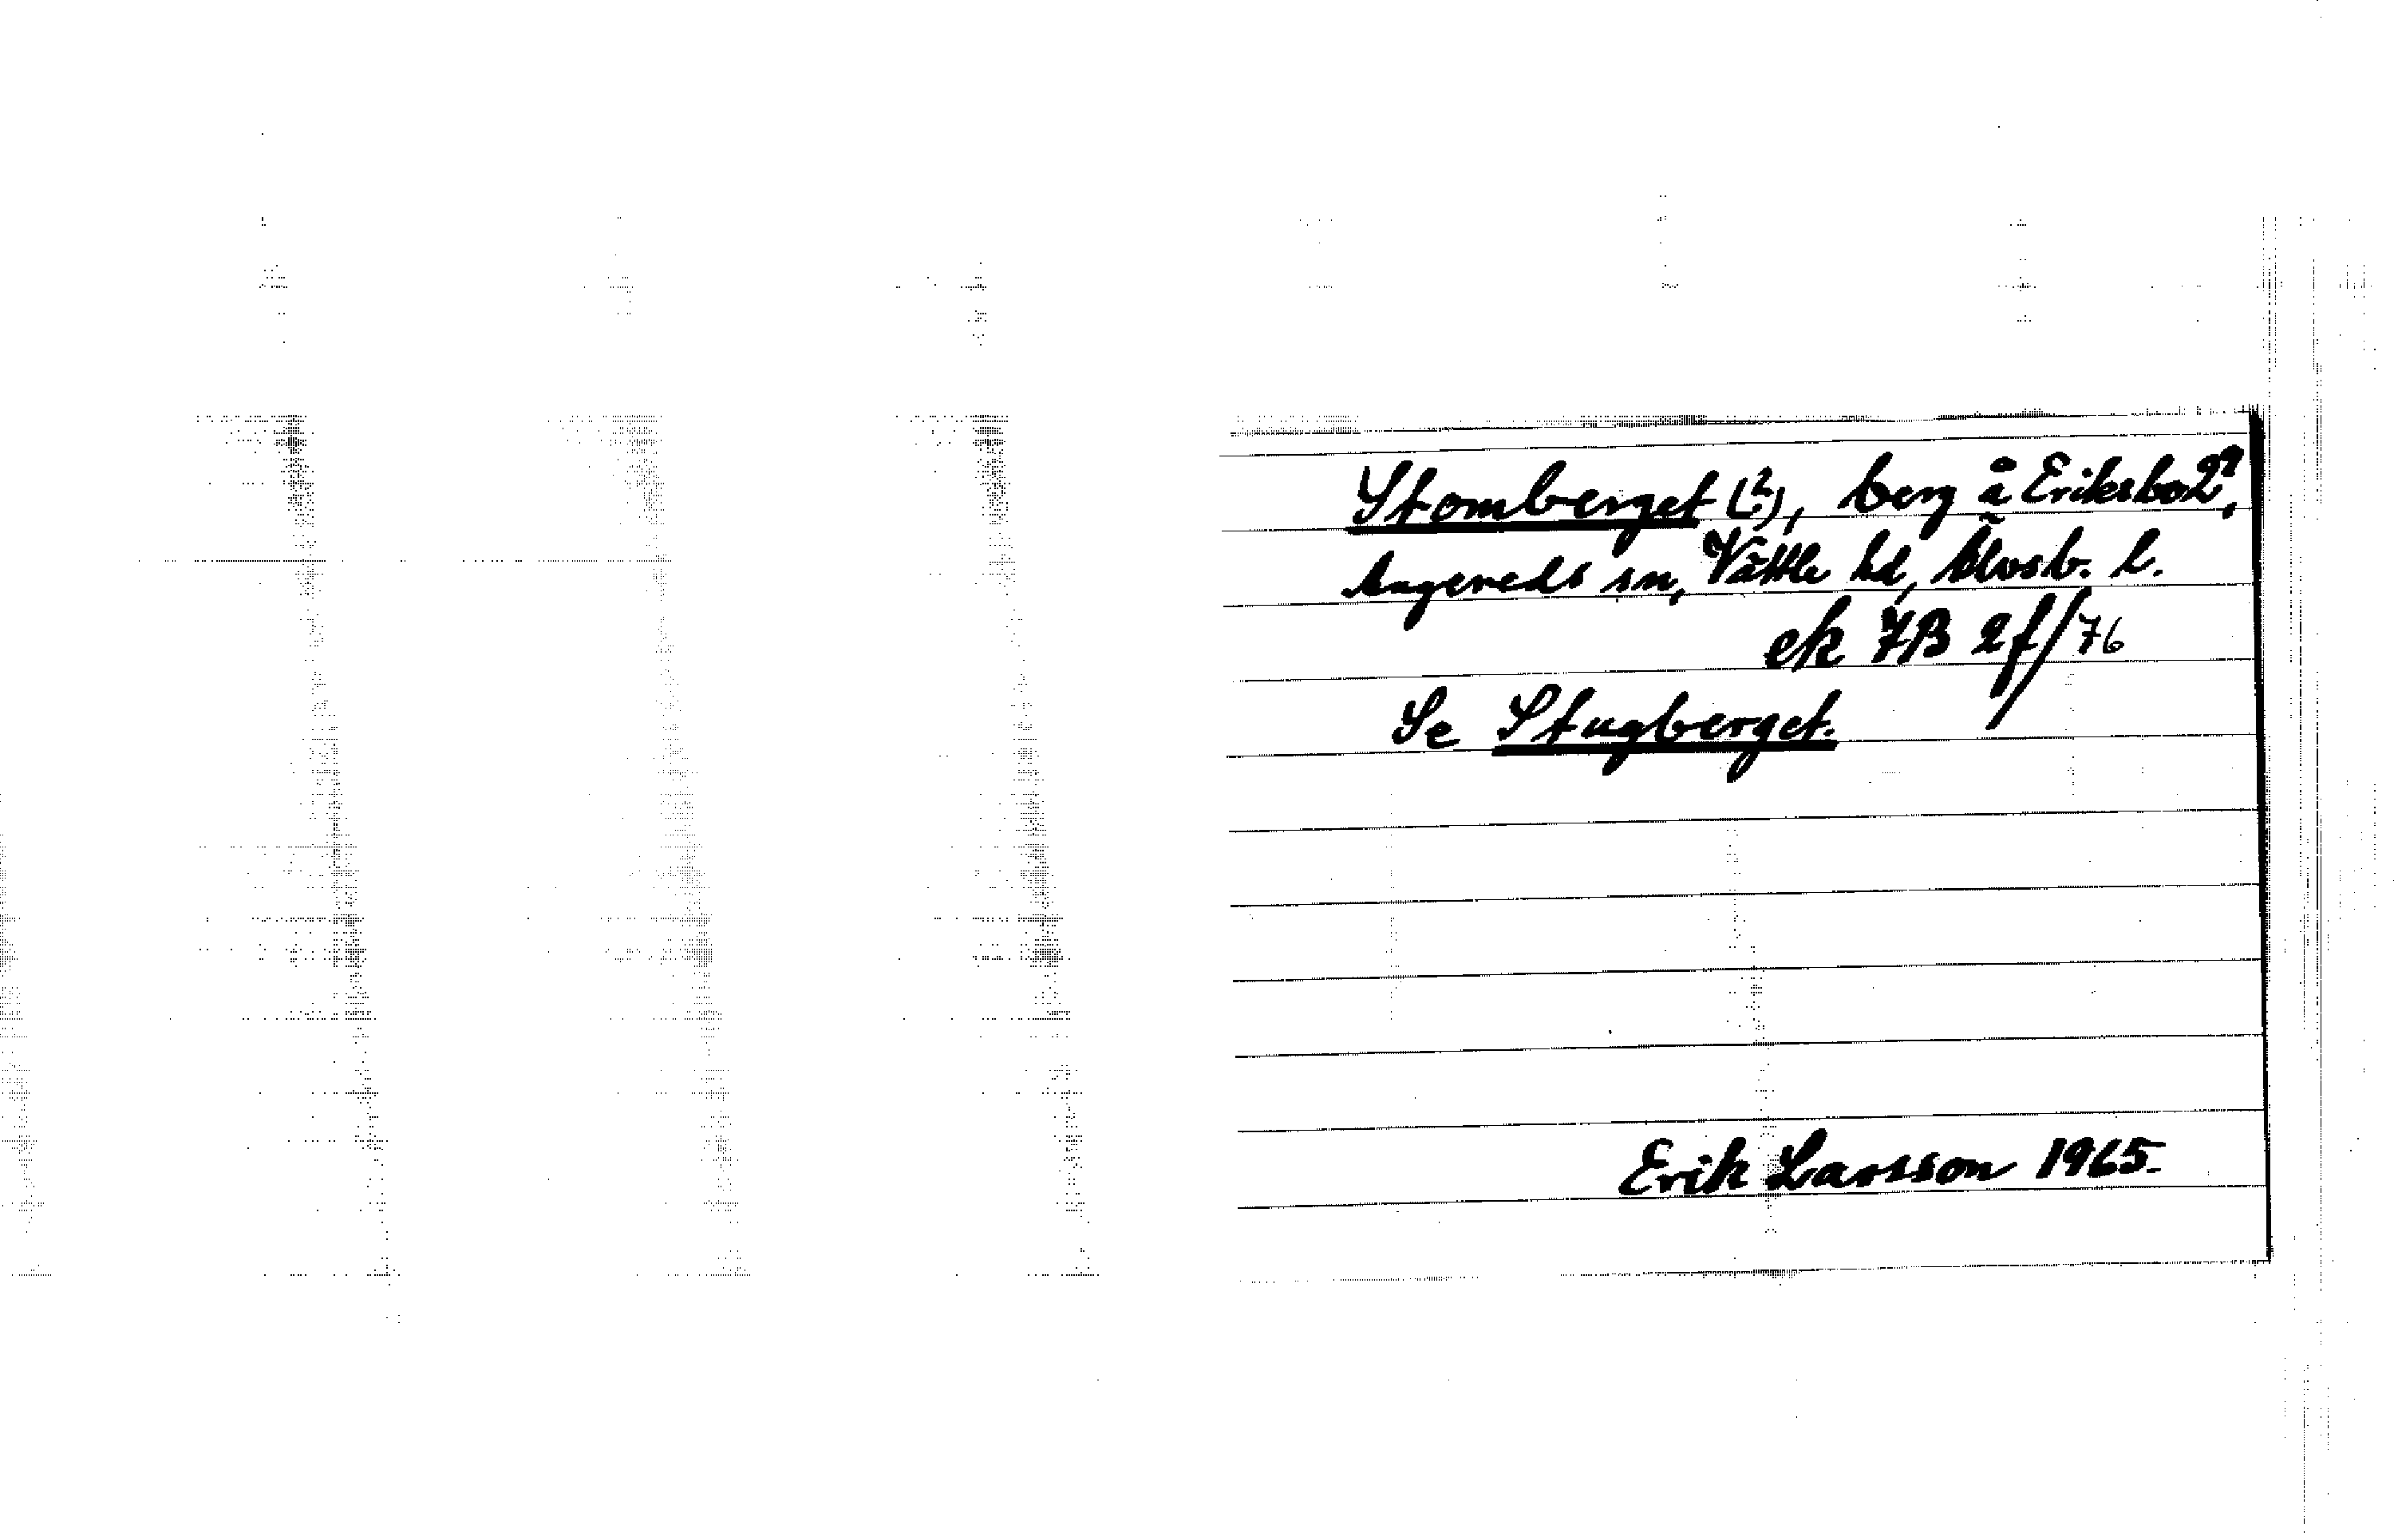 Stomberget (?), berg å Eriksbo 2?,
Angereds sn, Vättle hd, Älvsb. l.
ek 7B 2f/76
Se Stugberget.
Erik Larsson 1965.